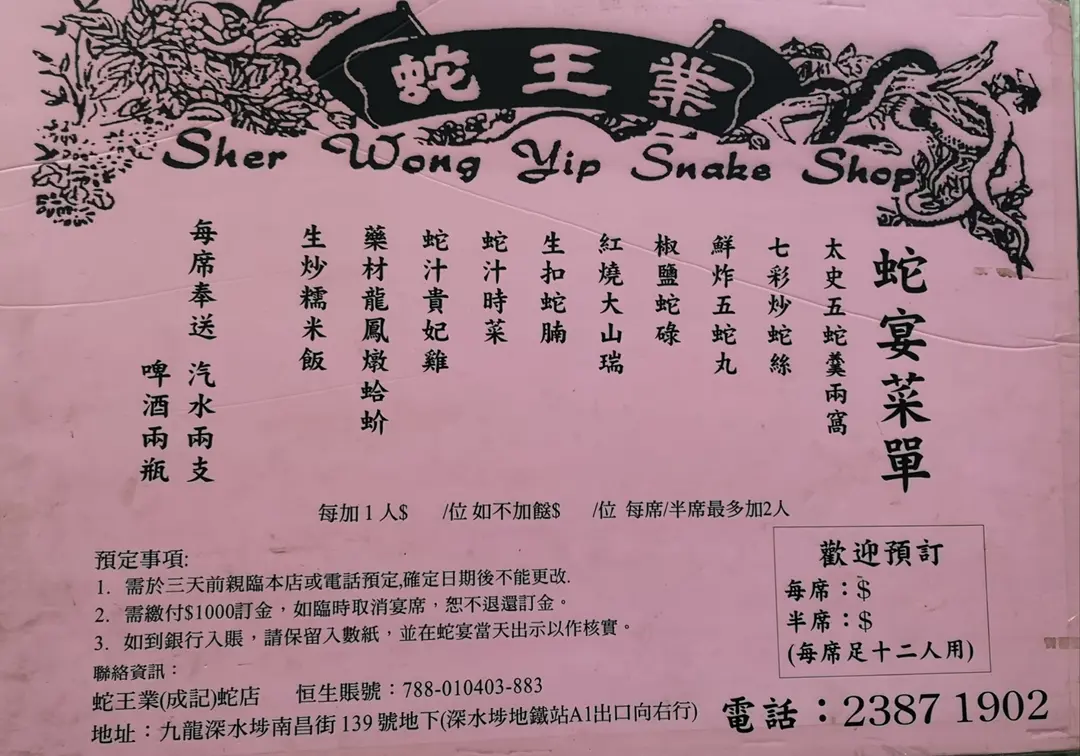 蛇王業
Sher Wong Yip Snake Shop
蛇宴菜單
太史五蛇羹兩窩
七彩炒蛇絲
鮮炸五蛇丸
椒鹽蛇碌
紅燒大山瑞
生扣蛇腩
蛇汁時菜
蛇汁貴妃雞
藥材龍鳳燉蛤蚧
生炒糯米飯
每席奉送 汽水兩支
啤酒兩瓶
每加1人$ /位 如不加餸$ /位 每席/半席最多加2人
歡迎預訂
每席：$
半席：$
(每席足十二人用)
預定事項:
1. 需於三天前親臨本店或電話預定,確定日期後不能更改.
2. 需繳付$1000訂金，如臨時取消宴席，恕不退還訂金。
3. 如到銀行入賬，請保留入數紙，並在蛇宴當天出示以作核實。
聯絡資訊：
蛇王業(成記)蛇店 恒生賬號：788-010403-883
地址：九龍深水埗南昌街139號地下(深水埗地鐵站A1出口向右行)
電話：2387 1902